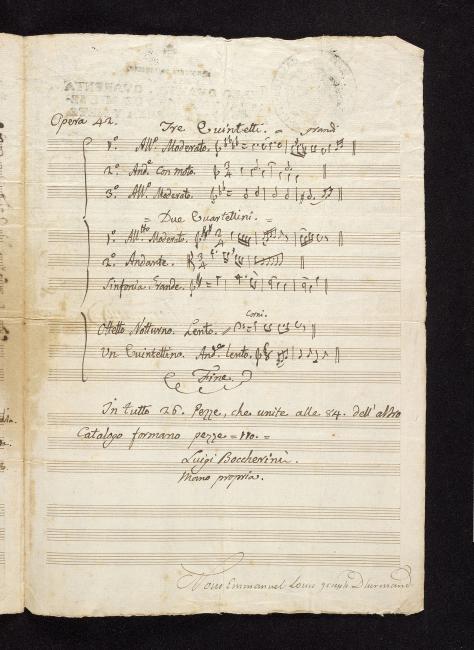 Opera 42.
Tre Quintetti. = grandi
1.º All.º Moderato.
2.º And.e con moto.
3.º All.º Moderato.
= Due Quartettini. =
1.º All.tto Moderato.
2.º Andante.
Sinfonia Grande.
Corni.
Ottetto Notturno. Lento.
Un Quintettino. And.e lento.
Fine.
In tutto 26. Pezze, che unite alle 84. dell'altro
Catalogo formano pezze = 110. =
Luigi Boccherini.
Mano propria.
Nous Emmanuel Louis Joseph Dhermand